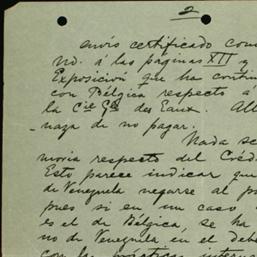 2
envío certificado com
no. á las páginas XII y
Exposición que ha contin
con Bélgica respecto á
la Cie Gle des Eaux. All
naza de no pagar.
Nada se
moria respecto del Créd
Esto parece indicar que
de Venezuela negarse al p
pues si en un caso
es el de Bélgica, se ha
no de Venezuela en el deb
con la